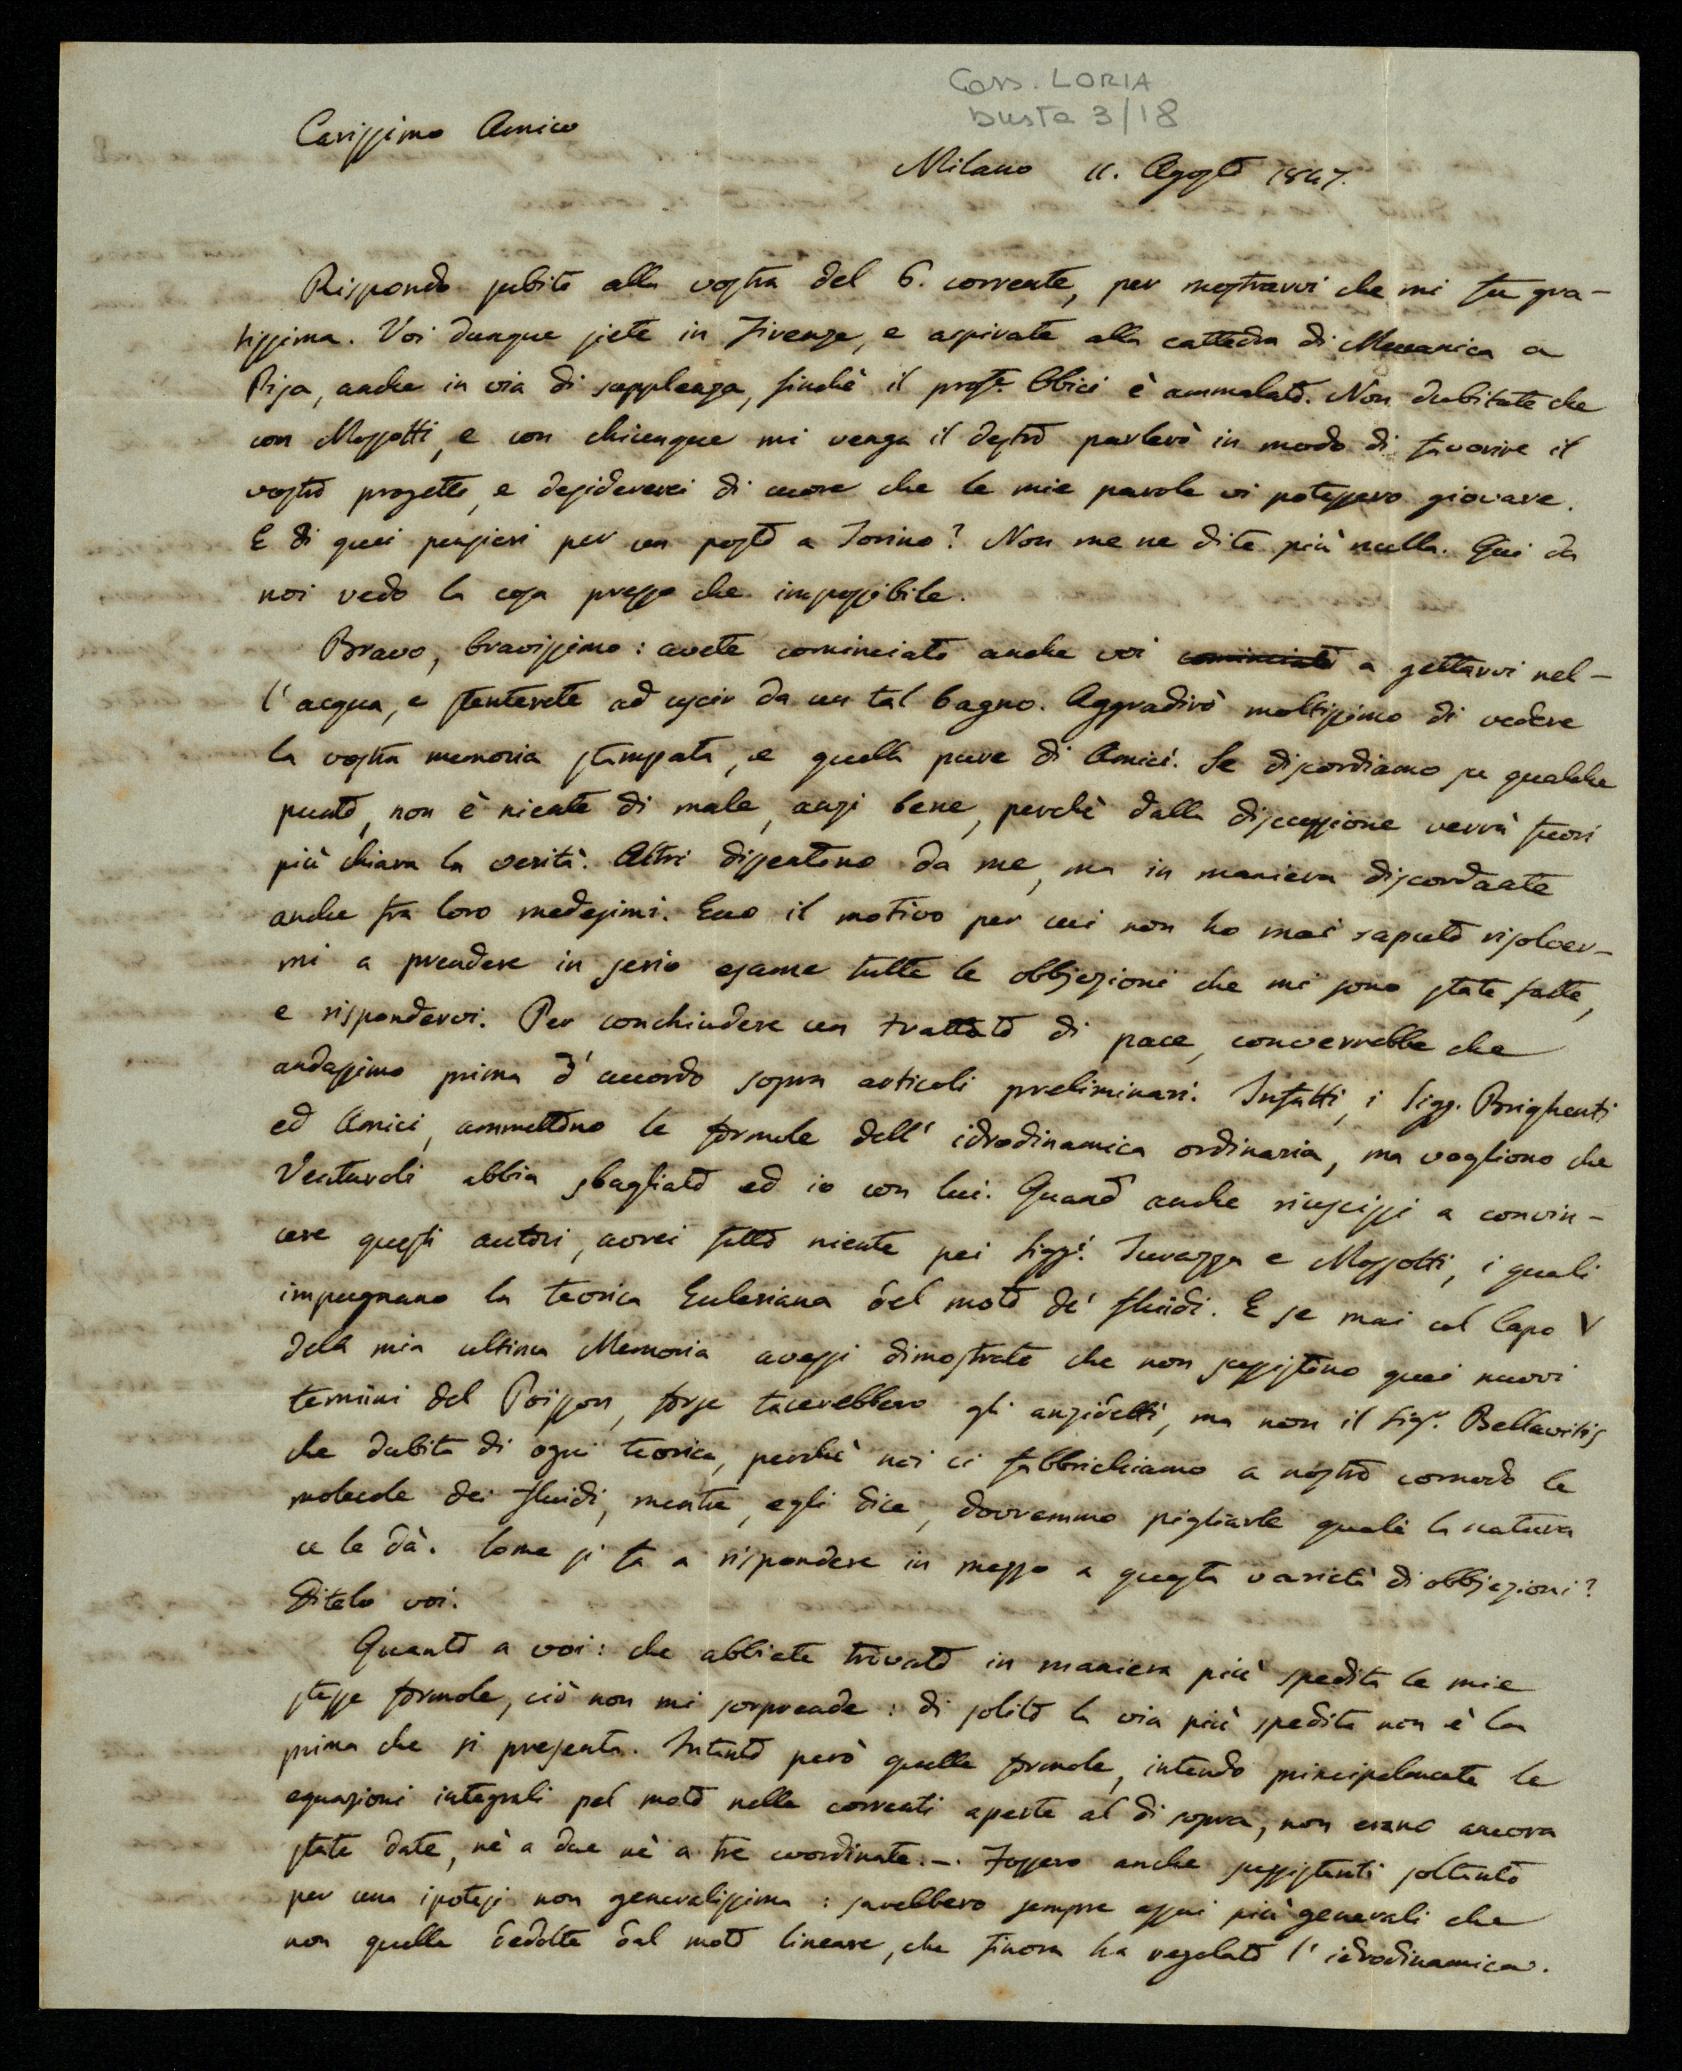 Cass. LORIA
busta 3/18
Carissimo Amico
Milano 11. Agosto 1847.
Rispondo subito alla vostra del 6. corrente, per mostrarvi che mi fu gra-
tissima. Voi dunque siete in Firenze, e aspirate alla cattedra di Meccanica a
Pisa, anche in via di supplenza, finchè il profr. Obici è ammalato. Non dubitate che
con Mossotti, e con chiunque mi venga il destro parlerò in modo di favorire il
vostro progetto, e desidererei di cuore che le mie parole vi potessero giovare.
E di quei pensieri per un posto a Torino? Non me ne dite più nulla. Qui da
noi vedo la cosa presso che impossibile.
Bravo, bravissimo: avete cominciato anche voi cominciato a gettarvi nel-
l'acqua, e stenterete ad uscir da un tal bagno. Aggradirò moltissimo di vedere
la vostra memoria stampata, e quella pure di Amici. Se discordiamo su qualche
punto, non è niente di male, anzi bene, perchè dalla discussione verrà fuori
più chiara la verità. Altri dissentono da me, ma in maniera discordante
anche fra loro medesimi. Ecco il motivo per cui non ho mai saputo risolver-
mi a prendere in serio esame tutte le obbjezioni che mi sono state fatte,
e rispondervi. Per conchiudere un trattato di pace, converrebbe che
andassimo prima d'accordo sopra articoli preliminari. Infatti, i Sigg. Brighenti
ed Amici, ammettono le formole dell' idrodinamica ordinaria, ma vogliono che
Venturoli abbia sbagliato ed io con lui. Quand anche riuscissi a convin-
cere questi autori, avrei fatto niente pei Siggi. Turazza e Mossotti, i quali
impugnano la teorica Euleriana del moto de' fluidi. E se mai col Capo V
della mia ultima Memoria avessi dimostrato che non sussistono quei nuovi
termini del Poisson, forse tacerebbero gli anzidetti, ma non il Sigr. Bellavitis
che dubita di ogni teorica, perchè noi ci fabbrichiamo a nostro comodo le
molecole dei fluidi, mentre, egli dice, dovremmo pigliarle quali la natura
ce le dà. Come si fa a rispondere in mezzo a questa varietà di obbjezioni?
Ditelo voi.
Quanto a voi: che abbiate trovato in maniera più spedita le mie
stesse formole, ciò non mi sorprende: di solito la via più spedita non è la
prima che si presenta. Intanto però quelle formole, intendo principalmente le
equazioni integrali pel moto nelle correnti aperte al di sopra, non erano ancora
state date, nè a due nè a tre coordinate. -. Fossero anche sussistenti soltanto
per una ipotesi non generalissima: sarebbero sempre assai più generali che
non quelle dedotte dal moto lineare, che finora ha regolato l'idrodinamica.